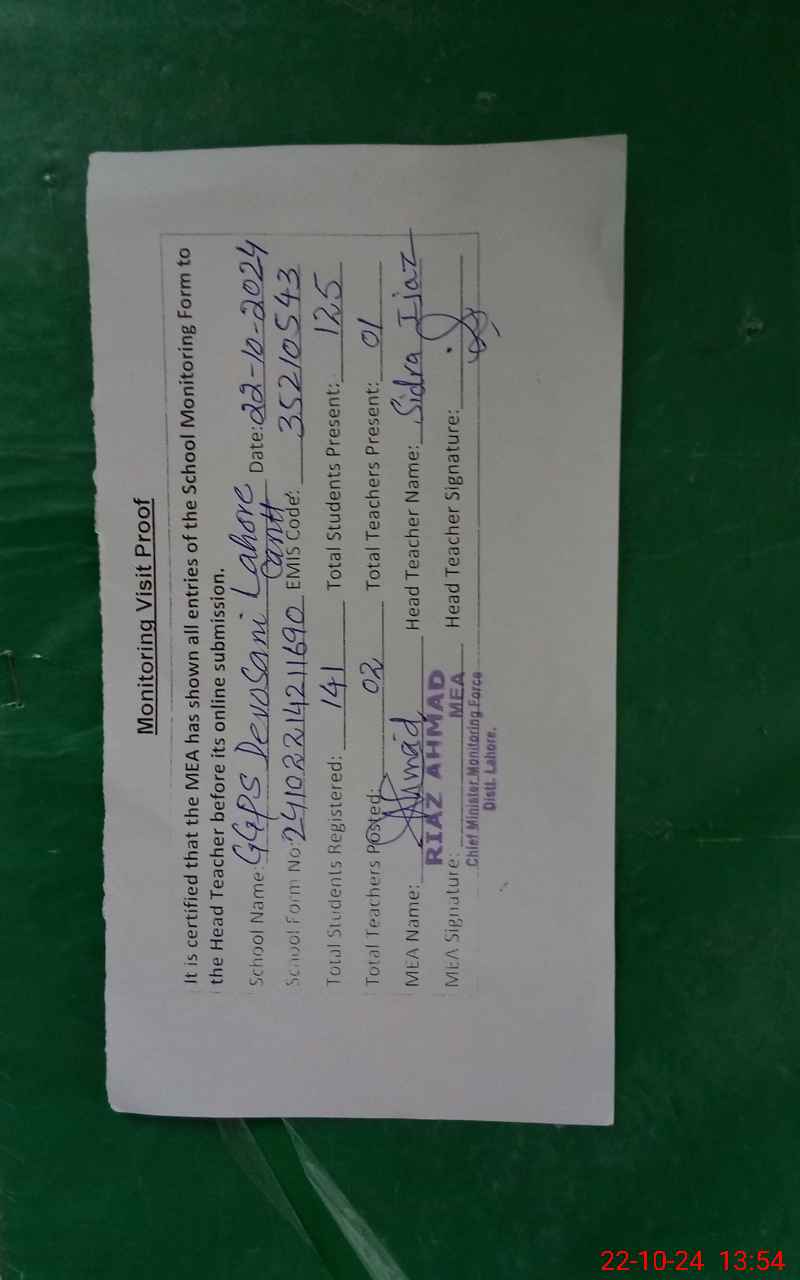 Monitoring Visit Proof
It is certified that the MEA has shown all entries of the School Monitoring Form to
the Head Teacher before its online submission.
School Name: GGPS Devosani Lahore Cantt Date: 22-10-2024
School Form No: 24102214211690 EMIS Code: 35210543
Total Students Registered: 141 Total Students Present: 125
Total Teachers Posted: 02 Total Teachers Present: 01
MEA Name: Ahmad Head Teacher Name: Sidra Ijaz
RIAZ AHMAD
MEA Signature: MEA Head Teacher Signature:
Chief Minister Monitoring Force
Distt. Lahore.
22-10-24 13:54